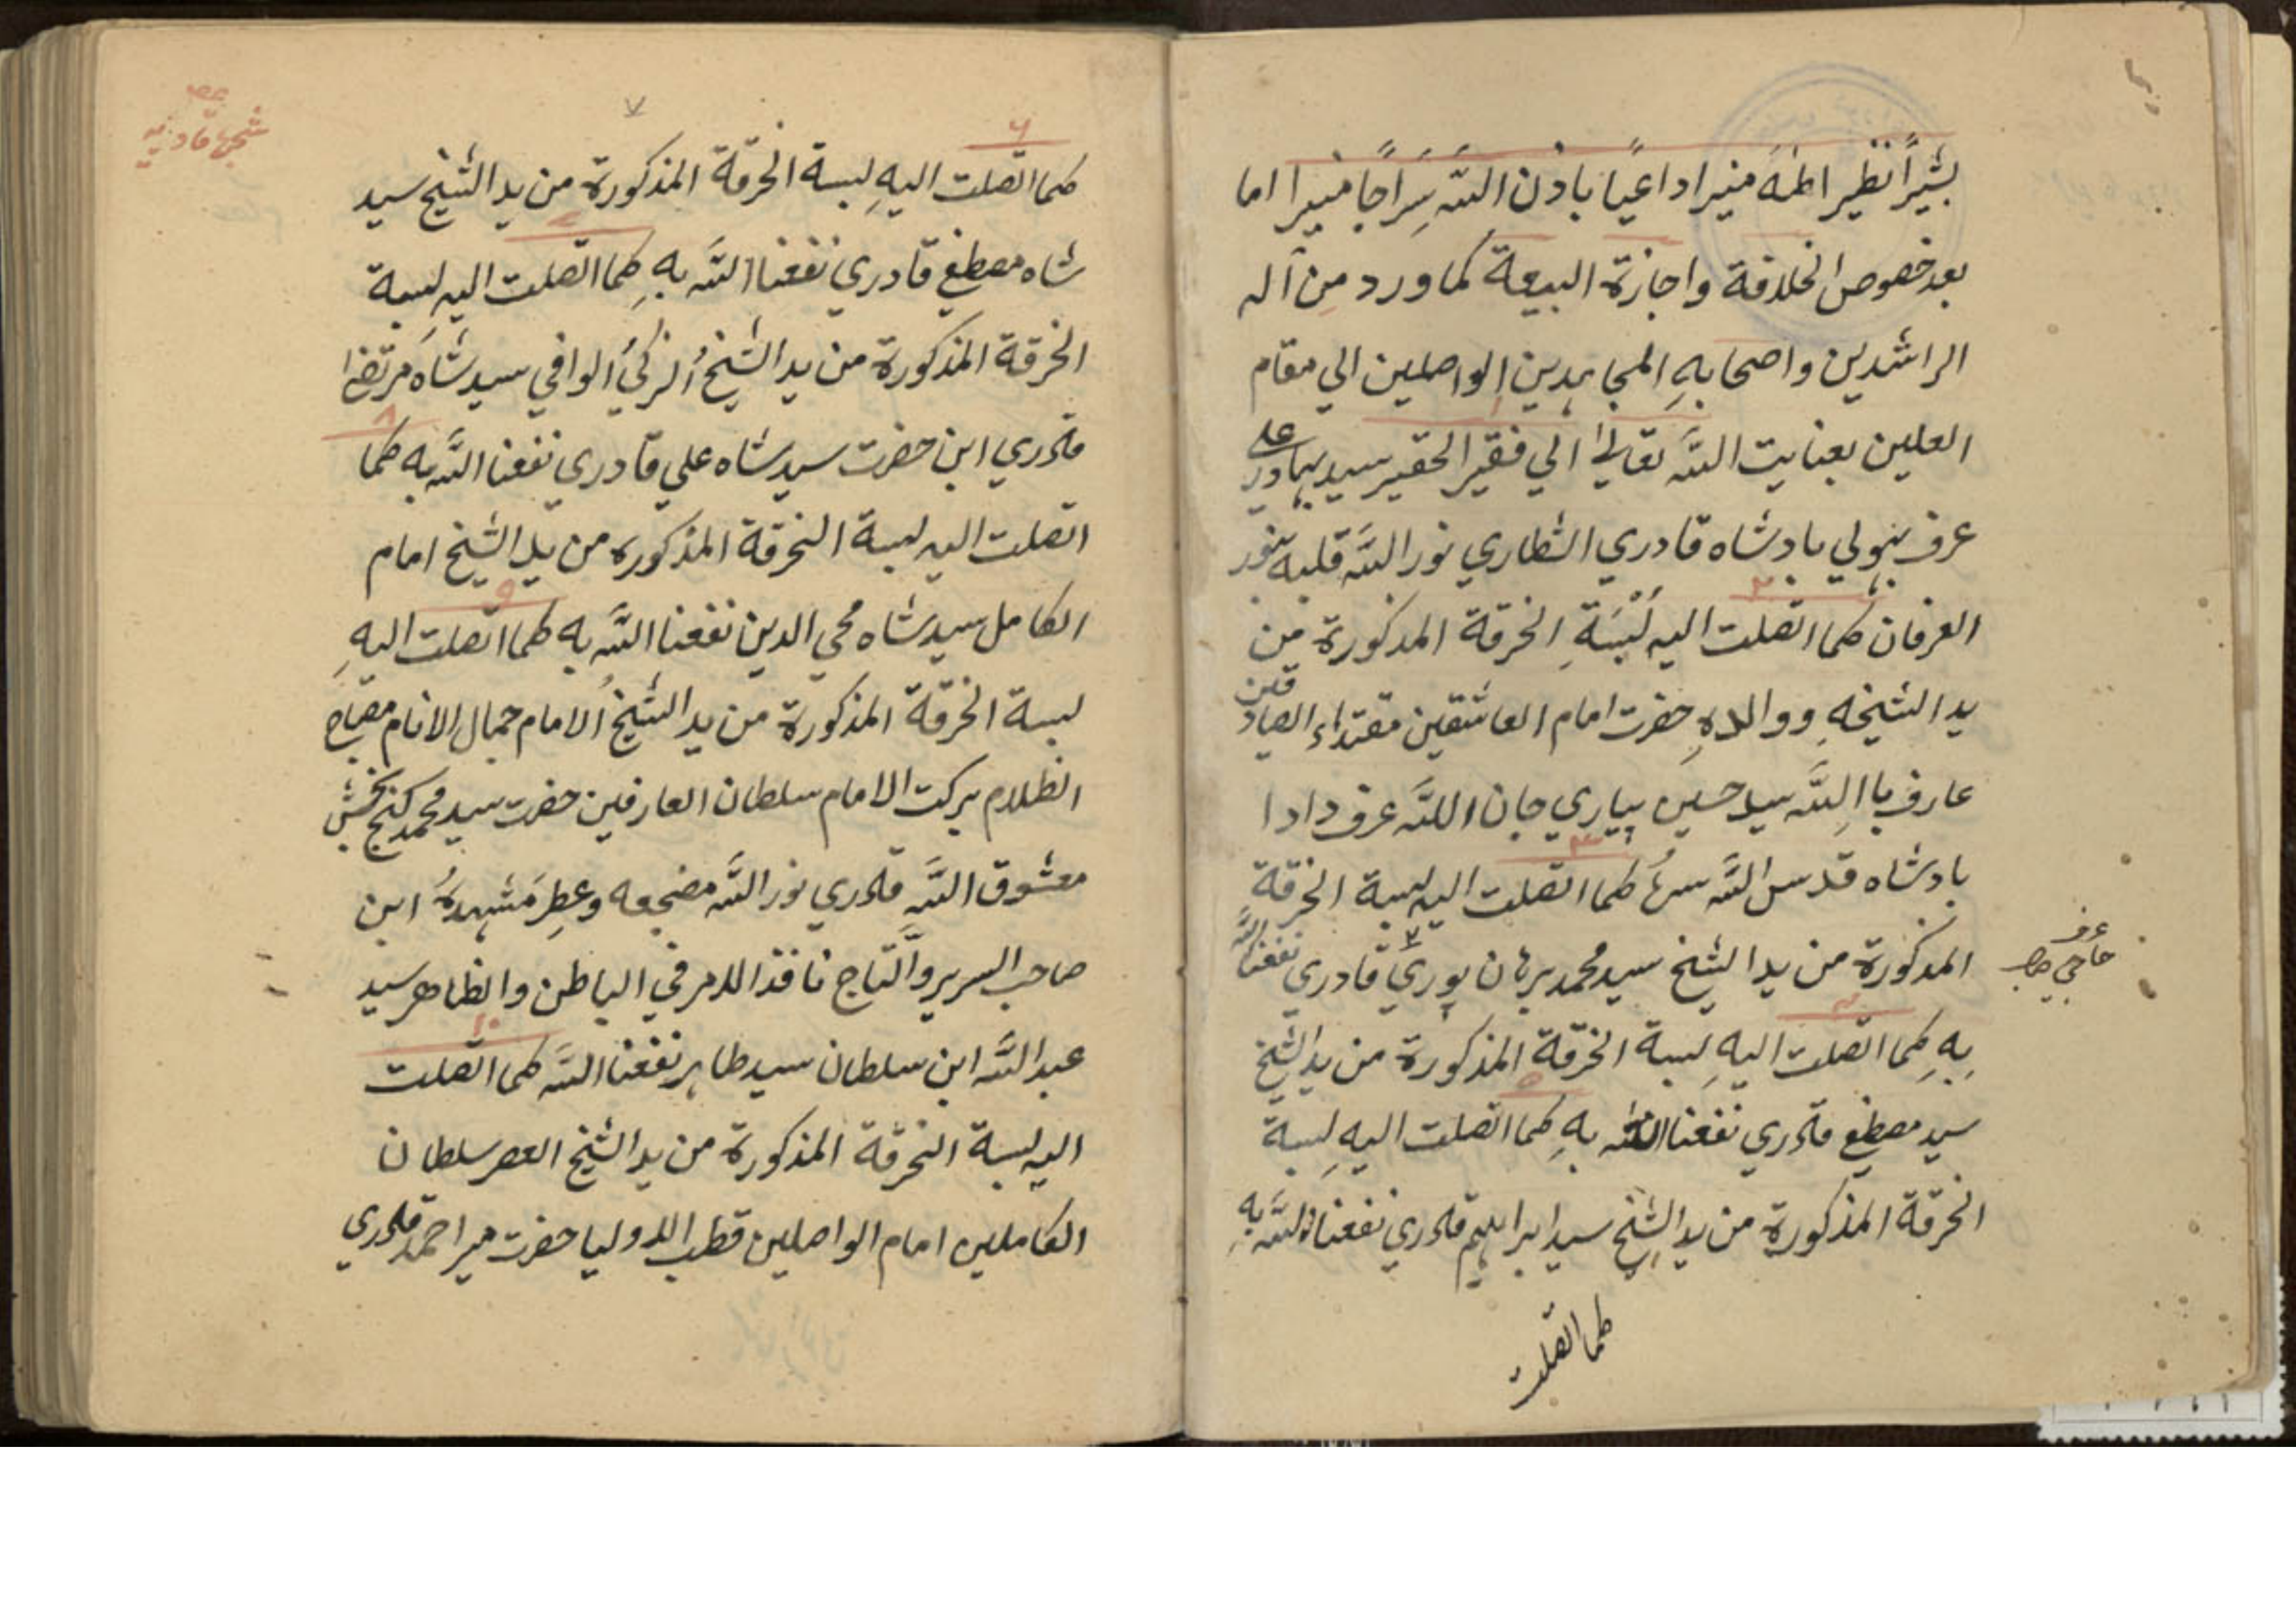 بشيراً نظيرا منيرا داعيًا باذن اللّه سِرَاجًا منيرا اما
بعد خصوص الخلافة واجازة البيعة كما ورد مِن آله
الراشدين واصحابهِ المجاہدين الواصلين الي مقام
العلين بعنايت اللّه تعالیٰ الي فقير الحقير سيد بہادر علي
عرف بادشاه قادري الشطاري نور اللّه قلبه بنور
العرفان كما اتصلت اليه لُبْسَةِ الخرقة المذكورة من
يد الشيخهِ ووالدهِ حضرت امام العاشقين مقتداء الصادقين
عارف با اللّه سيد حسين پياري جان اللّه عرف دادا
بادشاه قدس اللّه سرهُ كما اتصلت اليه لبسة الخرقة
المذكورة من يد الشيخ سيد محمد برہان پوري قادري نفعنا اللّه
عرف
حاجي صاحب
بِهِ كما اتصلت اليهِ لبسة الخرقة المذكورة من يد الشيخ
سيد مصطفے قادري نفعنا اللّه بهِ كما اتصلت اليهِ لبسة
الخرقة المذكورة من يد الشيخ سيد ابراہيم قادري نفعنا اللّه بهِ
كما اتصلت
شجرهٔ قادريه
٧
٦
كما اتصلت اليهِ لبسة الخرقة المذكورة من يد الشيخ سيد
٧
شاه مصطفے قادري نفعنا اللّه بهِ كما اتصلت اليه لبسة
الخرقة المذكورة من يد الشيخُ الزكيُ الوافي سيد شاه مرتضےٰ
٨
قادري ابن حضرت سيد شاه علي قادري نفعنا اللّه به كما
اتصلت اليه لبسة الخرقة المذكوره من يد الشيخ امام
٩
الكامل سيد شاه محي الدين نفعنا اللّه به كما اتصلت اليهِ
لبسة الخرقة المذكورة من يد الشيخُ الامام جمال الانام مصباح
الظلام بركت الامام سلطان العارفين حضرت سيد محمد گنج بخش
معشوق اللّهِ قادري نور اللّه مضجعه وعطِر مَشہدهُ ابن
صاحب السرير والتاج نافذ الامر في الباطن والظاهر سيد
١٠
عبد اللّه ابن سلطان سيد طاہر نفعنا اللّه كما اتصلت
اليه لبسة الخرقة المذكورة من يد الشيخ العصر سلطان
الكاملين امام الواصلين قطب الاوليا حضرت مير احمد قادري